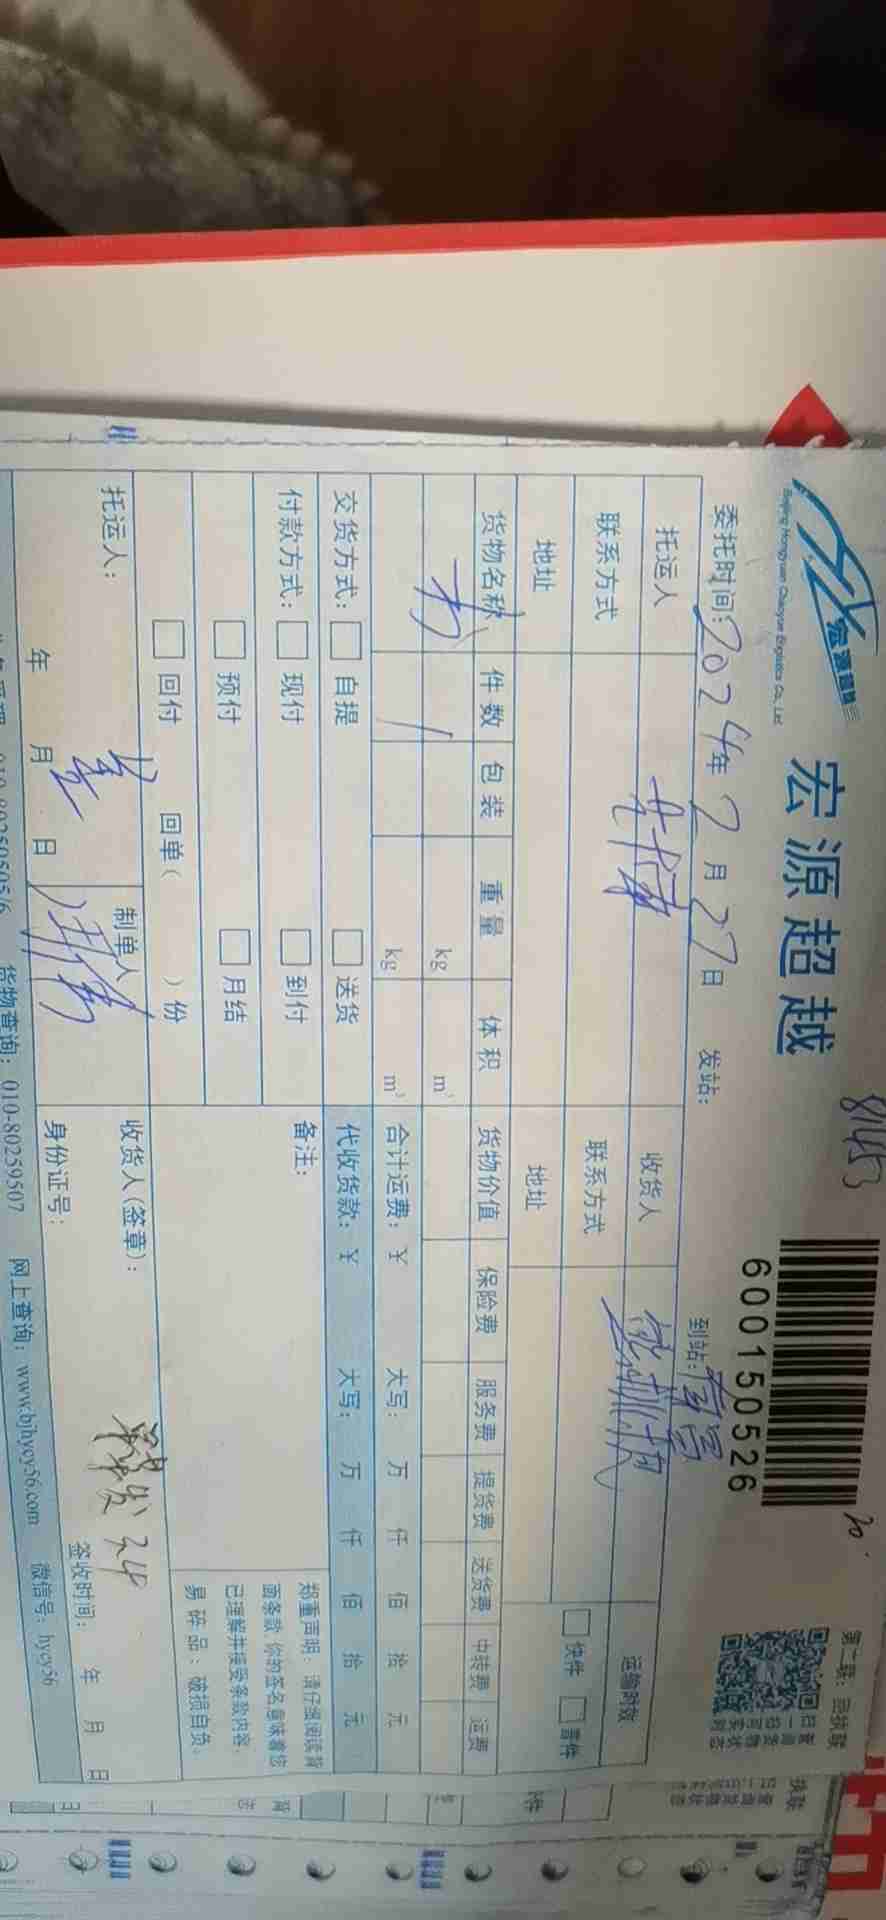 宏源超越
Beijing Hongyuan Chaoyue Logistics Co., Ltd
宏源超越
81453
600150526
20.
第二联：回执联
委托时间：2024年2月27日 发站： 到站：南昌
托运人 收货人 运输时效
联系方式 联系方式 快件 普件
地址 地址
货物名称 件数 包装 重量 体积 货物价值 保险费 服务费 提货费 送货费 中转费 运费
1 kg m³
kg m³ 合计运费：¥ 大写： 万 仟 佰 拾 元
交货方式： 自提 送货 代收货款：¥ 大写： 万 仟 佰 拾 元
付款方式： 现付 到付 备注：
预付 月结
回付 回单（ ）份
郑重声明：请仔细阅读背
面条款，你的签名意味着您
已理解并接受条款内容。
易碎品：破损自负。
托运人： 制单人 收货人(签章)：
年 月 日 身份证号： 签收时间： 年 月 日
010-80259505/6 货物查询：010-80259507 网上查询：www.bjhycy56.com 微信号：hycy56